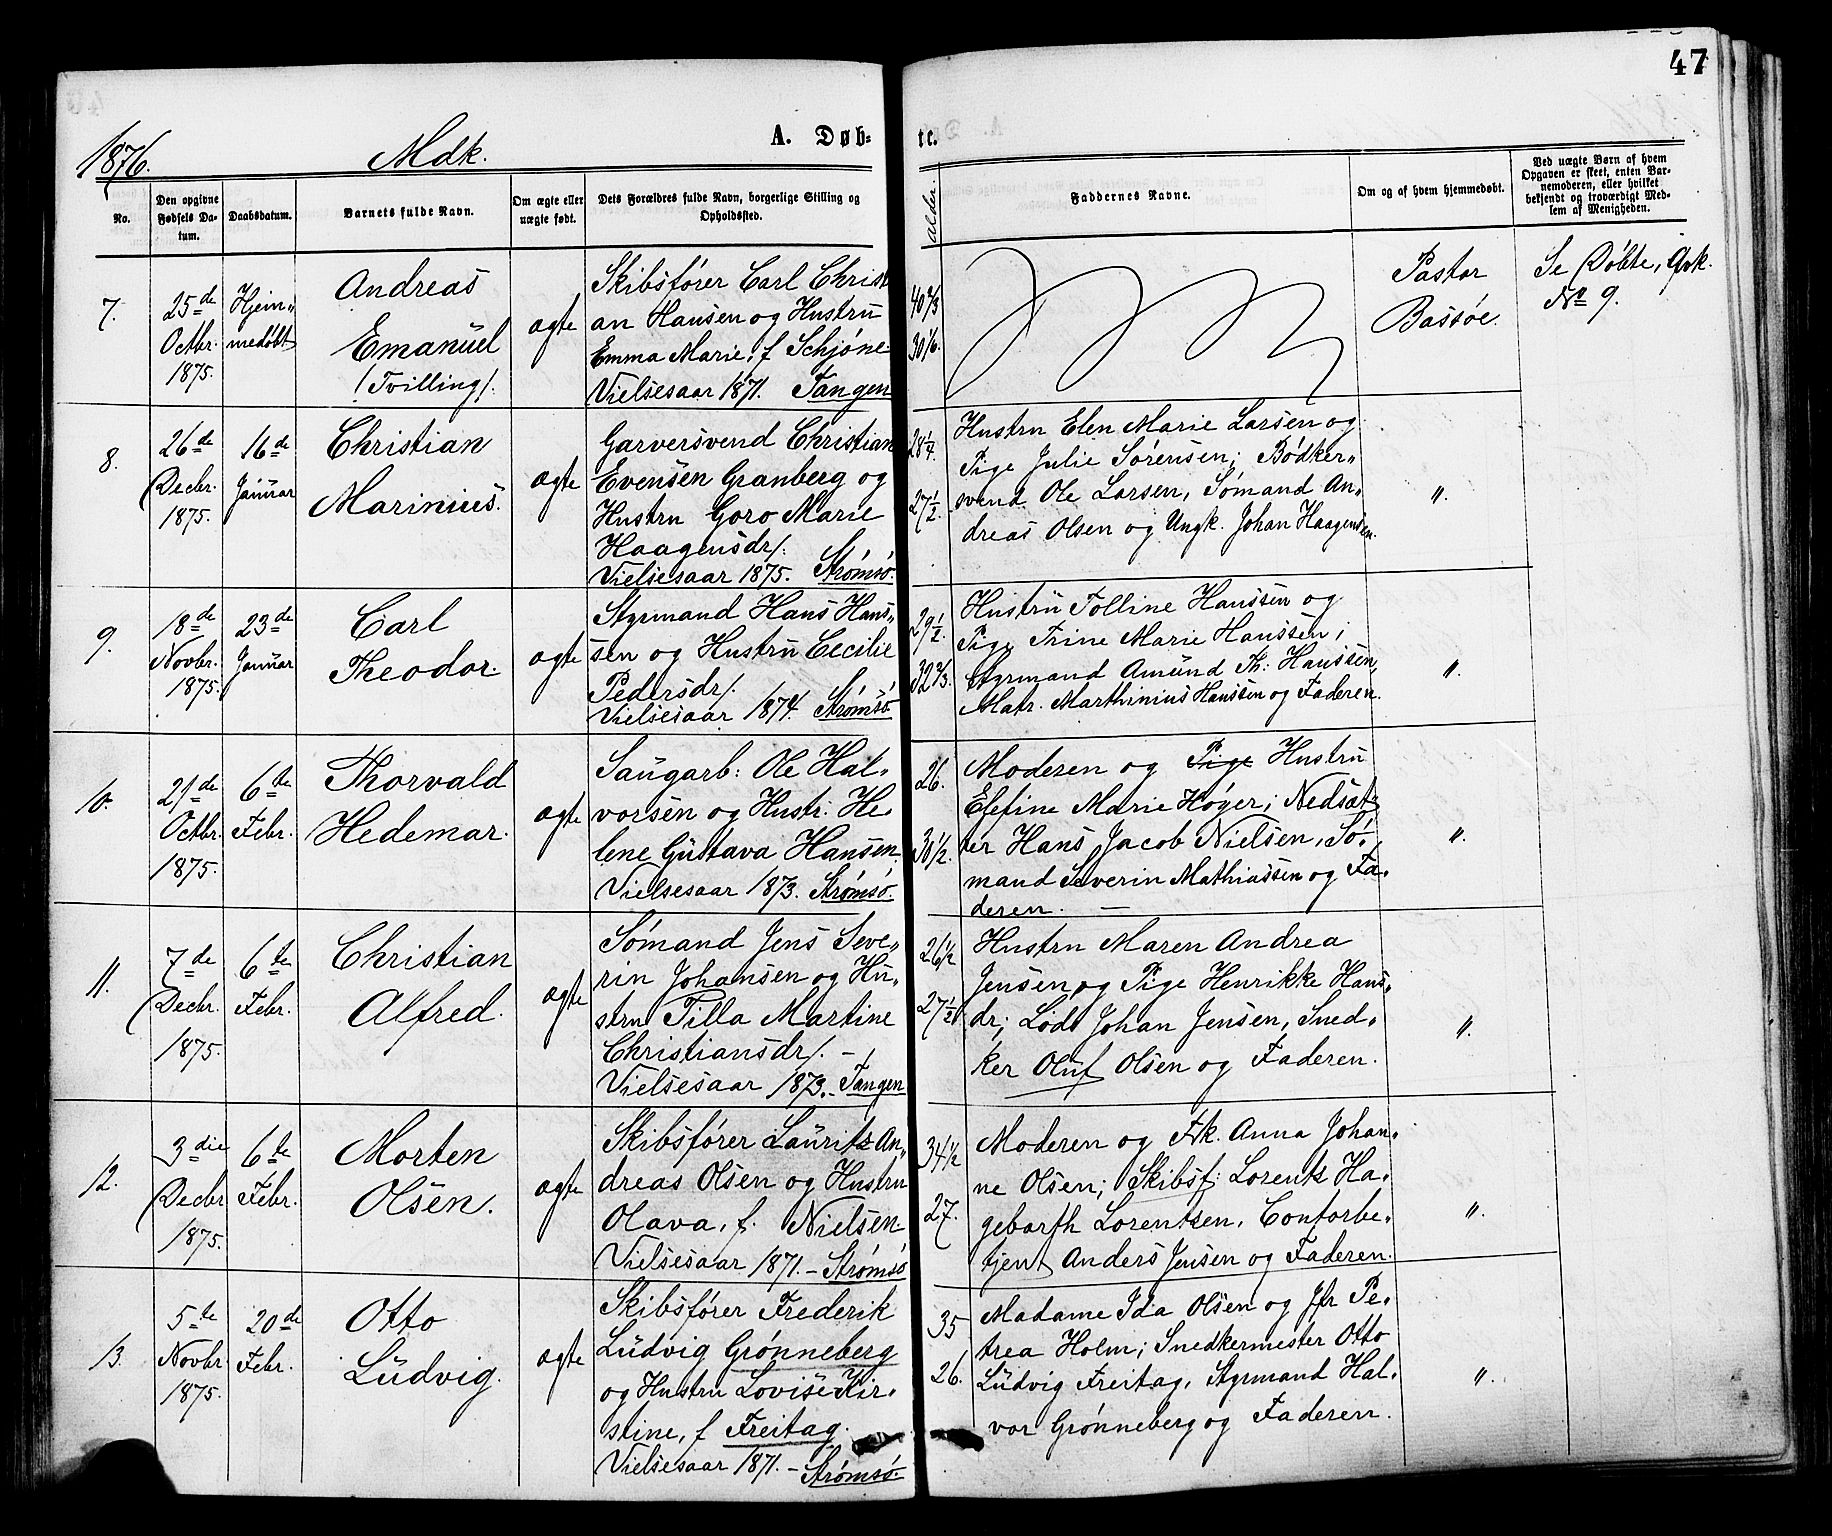 47
1876.
Mdk.
A. Døb=
te.
No.
Den opgivne Fødsels Da-
tum.
Daabsdatum.
Barnets fulde Navn.
Om ægte eller
uægte født.
Dets Forældres fulde Navn, borgerlige Stilling og
Opholdssted.
alder.
Faddernes Navne.
Om og af hvem hjemmedøbt.
Ved uægte Børn af hvem
Opgaven er skeet, enten Bar-
nemoderen, eller hvilket
bekjendt og troværdigt Med-
lem af Menigheden.
7.
25de
Octbr.
1875.
Hjem„
medøbt
Andreas
Emanuel
/Tvilling/.
ægte
Skibsfører Carl Christ
an Hansen og Hustru
Emma Marie, f Schjøne-
Vielsesaar 1871. Tangen
40 2/3
30 1/6.
Pastor
Bassøe.
Se Døbte, Qvk.
No 9.
8.
26de
Decbr.
1875.
16de
Januar
Christian
Marinius.
ægte
Garversvend Christian
Evensen Granberg og
Hustru Goro Marie
Haagensdr/.
Vielsesaar 1875. Strømsø.
28 1/4.
27 1/2.
Hustru Elen Marie Larsen og
Pige Julie Sørensen; Bødker„
svend Ole Larsen, Sømand An„
dreas Olsen og Ungk. Johan Haagensen.
„.
9.
18de
Novbr.
1875.
23de
Januar
Carl
Theodor.
ægte
Styrmand Hans Hans„
sen og Hustru Cecilie
Pedersdr/.
Vielsesaar 1874. Strømsø
29 1/2.
32 2/3.
Hustru Tolline Hanssen og
Pige Trine Marie Hanssen;
Styrmand Amund Th: Hanssen,
Matr. Marthinius Hanssen og Faderen.
„.
10.
21de
Octbr.
1875.
6te
Febr.
Thorvald
Hedemar.
ægte
Saugarb: Ole Hal„
vorsen og Hustr: He„
lene Gustava Hansen
Vielsesaar 1873. Strømsø.
26.
30 1/2.
Moderen og Pige Hustru
Elefine Marie Høyer; Nedsæt„
ter Hans Jacob Nielsen, Sø„
mand Severin Mathiassen og Fa„
deren. —
„.
11.
7de
Decbr.
1875.
6te
Febr.
Christian
Alfred.
ægte
Sømand Jens Seve„
rin Johansen og Hu„
stru Pilla Martine
Christiansdr/. —
Vielsesaar 1873. - Tangen
26 1/2
27 1/2
Hustru Maren Andrea
Jensen og Pige Henrikke Hans„
dr; Lods Johan Jensen, Sned„
ker Oluf Olsen og Faderen.
„.
12.
3die
Decbr
1875.
6te
Febr.
Morten
Olsen.
ægte
Skibsfører Lauritz An„
dreas Olsen og Hustru
Olava, f. Nielsen.
Vielsesaar 1871. – Strømsø
34 1/2
27.
Moderen og Frk. Anna Johan„
ne Olsen; Skibsf: Lorentz Ha„
gebarth Lorentzen, Contorbe„
tjent Anders Jensen og Faderen.
„.
13.
5te
Novbr.
1875.
20de
Febr.
Otto
Ludvig.
ægte
Skibsfører Frederik
Ludvig Grønneberg
og Hustru Lovise Kir„
stine, f Freitag.
Vielsesaar 1871. – Strømsø.
35
26.
Madame Ida Olsen og Jfr Pe„
trea Holm; Snedkermester Otto
Ludvig Freitag, Styrmand Hal„
vor Grønneberg og Faderen.
„.